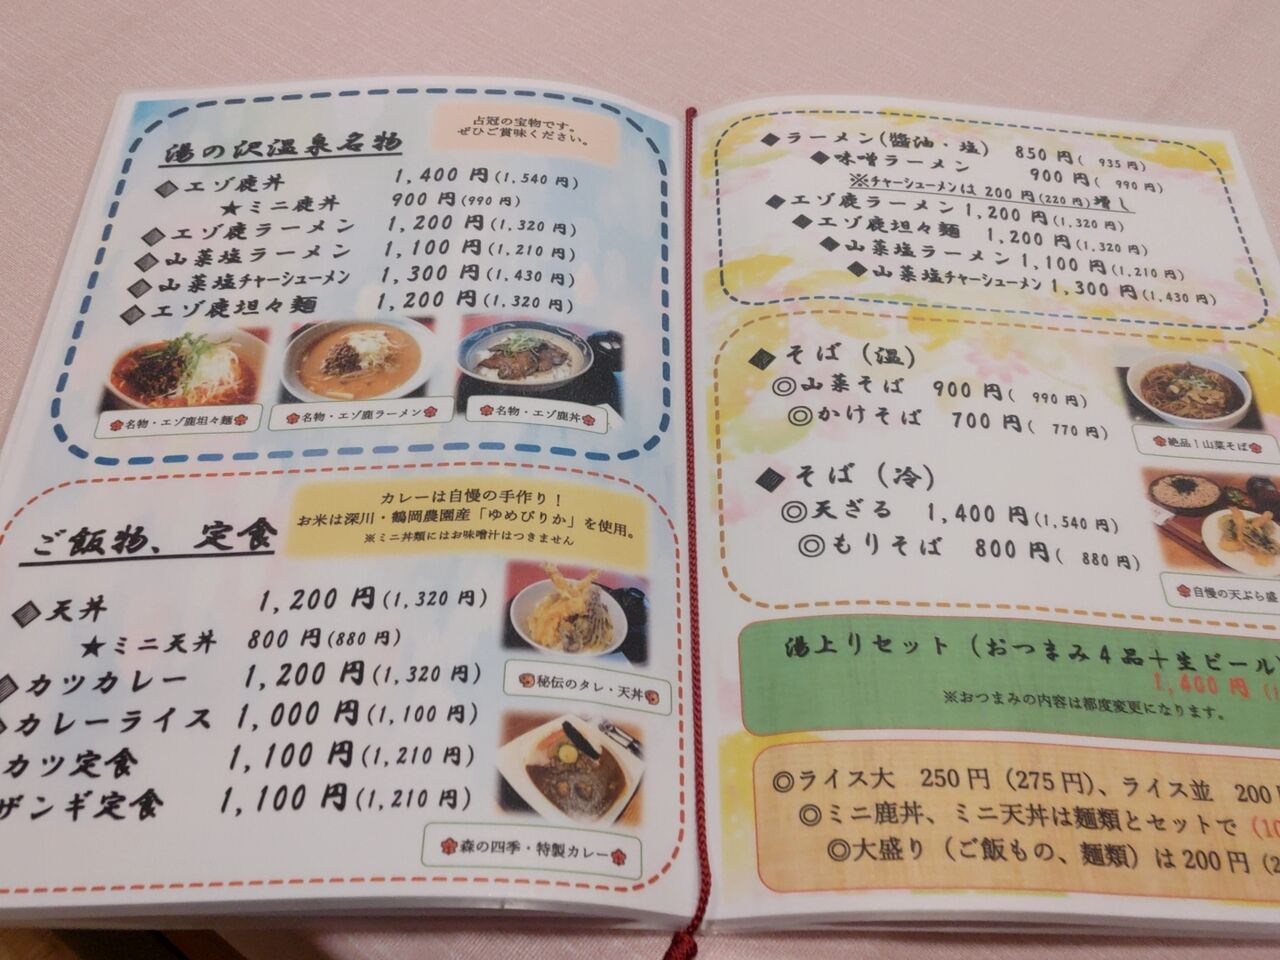 湯の沢温泉名物
占冠の宝物です。
ぜひご賞味ください。
◆エゾ鹿丼 1,400円(1,540円)
★ミニ鹿丼 900円(990円)
◆エゾ鹿ラーメン 1,200円(1,320円)
◆山菜塩ラーメン 1,100円(1,210円)
◆山菜塩チャーシューメン 1,300円(1,430円)
◆エゾ鹿坦々麺 1,200円(1,320円)
名物・エゾ鹿坦々麺
名物・エゾ鹿ラーメン
名物・エゾ鹿丼
ご飯物、定食
カレーは自慢の手作り!
お米は深川・鶴岡農園産「ゆめぴりか」を使用。
※ミニ丼類にはお味噌汁はつきません
◆天丼 1,200円(1,320円)
★ミニ天丼 800円(880円)
◆カツカレー 1,200円(1,320円)
◆カレーライス 1,000円(1,100円)
カツ定食 1,100円(1,210円)
ザンギ定食 1,100円(1,210円)
秘伝のタレ・天丼
森の四季・特製カレー
◆ラーメン(醬油・塩) 850円( 935円)
◆味噌ラーメン 900円( 990円)
※チャーシューメンは200円(220円)増し
◆エゾ鹿ラーメン 1,200円(1,320円)
◆エゾ鹿坦々麺 1,200円(1,320円)
◆山菜塩ラーメン 1,100円(1,210円)
◆山菜塩チャーシューメン 1,300円(1,430円)
◆そば(温)
◎山菜そば 900円( 990円)
◎かけそば 700円( 770円)
絶品!山菜そば
◆そば(冷)
◎天ざる 1,400円(1,540円)
◎もりそば 800円( 880円)
自慢の天ぷら盛
湯上りセット(おつまみ4品+生ビール)
1,400円
※おつまみの内容は都度変更になります。
◎ライス大 250円(275円)、ライス並 200円
◎ミニ鹿丼、ミニ天丼は麺類とセットで
◎大盛り(ご飯もの、麺類)は200円